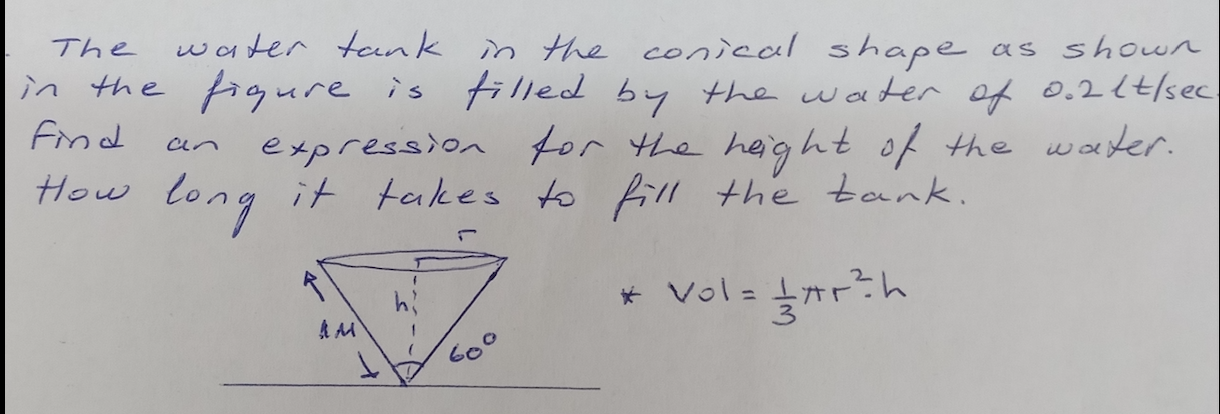 The water tank in the conical shape as shown
in the figure is filled by the water of 0.2 lt/sec.
Find an expression for the height of the water.
How long it takes to fill the tank.
r
h
60°
* Vol = 1/3 πr²·h